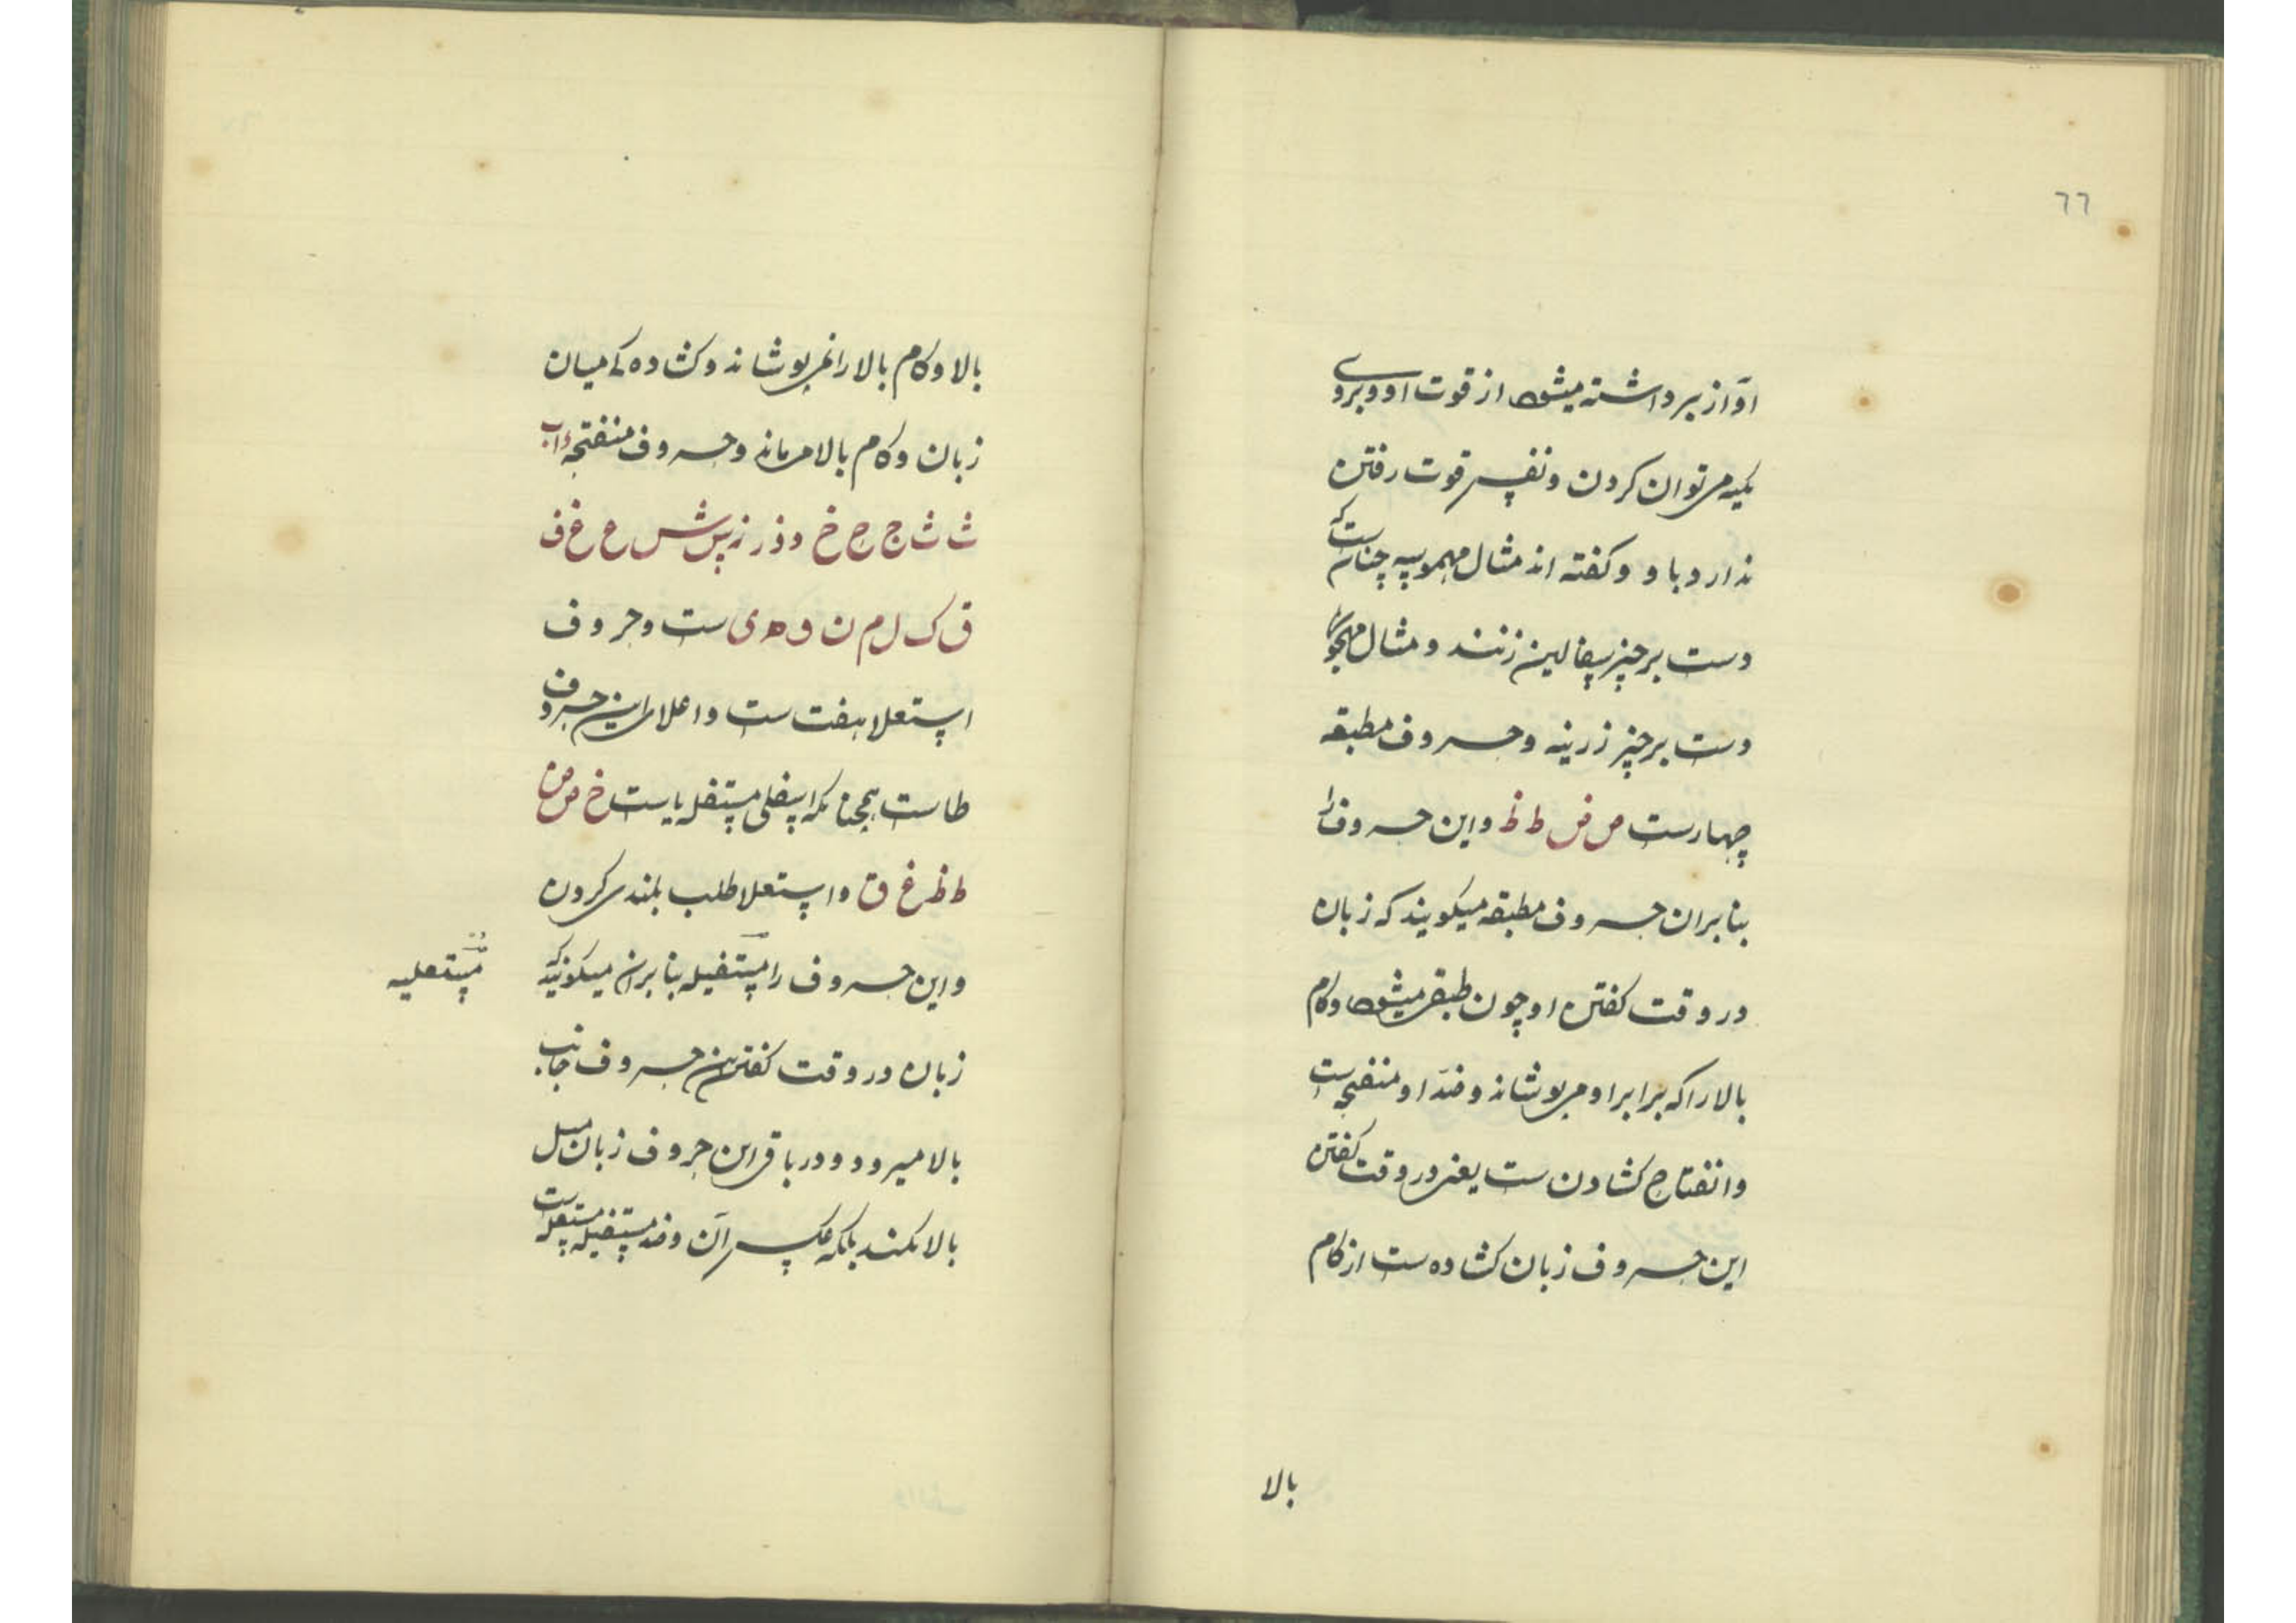 ٦٦
آواز برداشته میشود از قوت او و بروی
تکیه می توان کردن و نفس قوت رفتن
ندارد با و و کفته اند مثال مهموسه چنانست که
دست بر چیز سفالین زنند و مثال مجهوره
دست بر چیز زرینه و حروف مطبقه
چهارست ص ض ط ظ و این حروف را
بنابران حروف مطبقه میکویند که زبان
در وقت کفتن او چون طبقی میشود و کام
بالا را که برابر او می پوشاند و ضدّ او منفتحه است
وانفتاح کشادن ست یعنی در وقت کفتن
این حروف زبان کشاده ست از کام
بالا
بالا و کام بالا را نمی پوشاند و کشاده کے میان
زبان و کام بالا می ماند و حروف منفتحه ء ا ب
ت ث ج ح خ د ذ ر ز س ش ع غ ف
ق ک ل م ن و ه ی ست و حروف
استعلا هفت ست و اعلای این حروف
طاست همچنانکه اسفلی مستفله یاست خ ص ض
ط ظ غ ق و استعلا طلب بلندی کردن
و این حروف را مستفیله بنابران میکویند که
مستعلیه
زبان در وقت کفتن این حروف جانب
بالا میرود و در باقی این حروف زبان میل
بالا نکند بلکه عکس آن و ضد مستفیله مستعله است